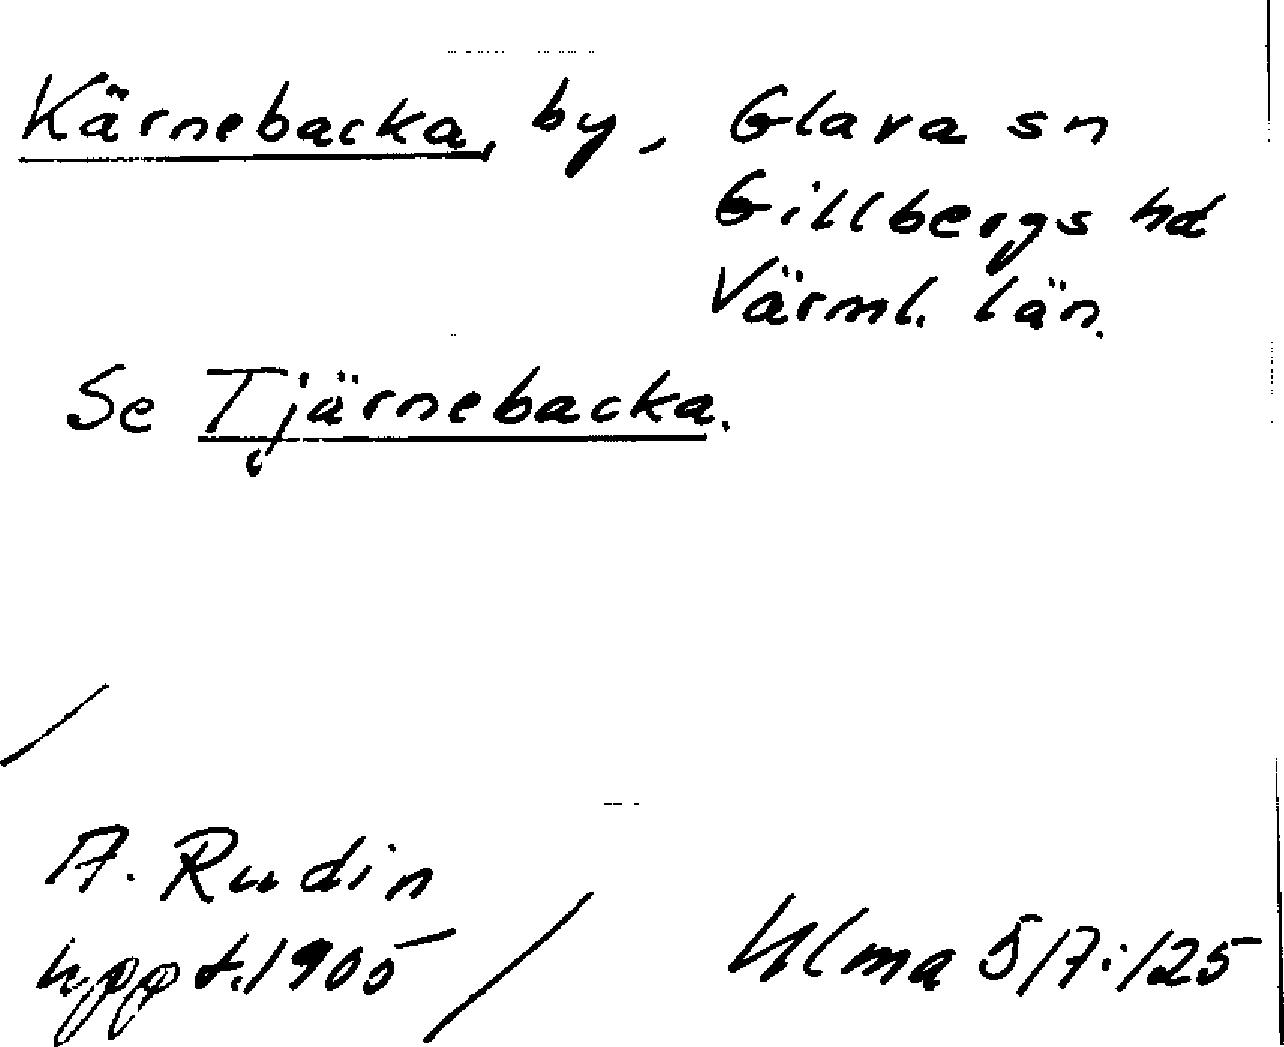 Kärnebacka, by, Glava sn
Gillbergs hd
Värml. län.
Se Tjärnebacka.
A. Rudin
uppt. 1905
Ulma 5/7:/25